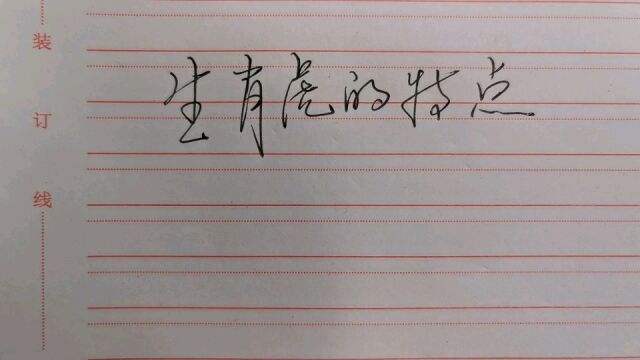 装
订
线
生肖虎的特点